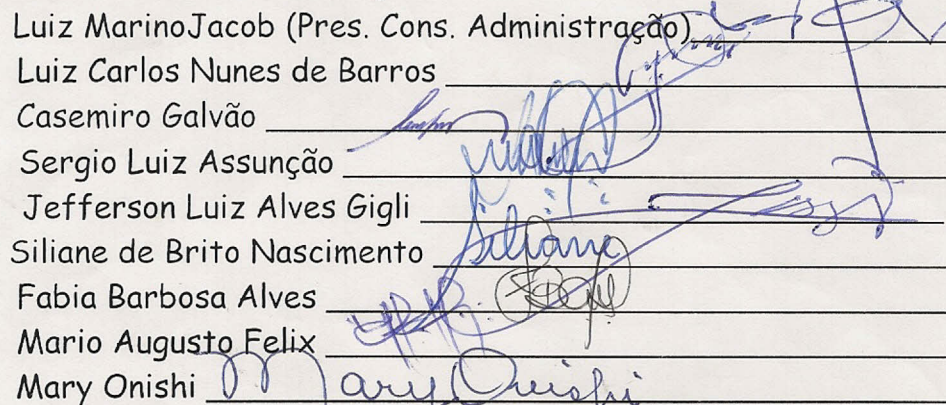 Luiz MarinoJacob (Pres. Cons. Administração)
Luiz Carlos Nunes de Barros
Casemiro Galvão
Sergio Luiz Assunção
Jefferson Luiz Alves Gigli
Siliane de Brito Nascimento Siliane
Fabia Barbosa Alves
Mario Augusto Felix
Mary Onishi Mary Onishi